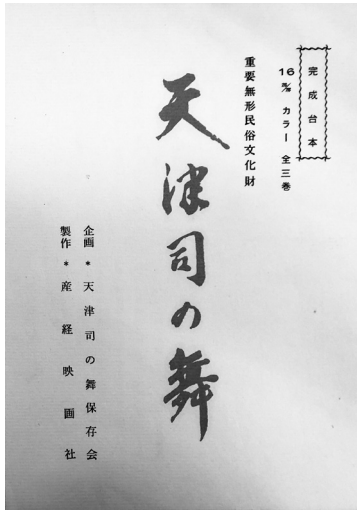 完成台本
16㍉ カラー 全三巻
重要無形民俗文化財
天津司の舞
企画*天津司の舞保存会
製作*産経映画社